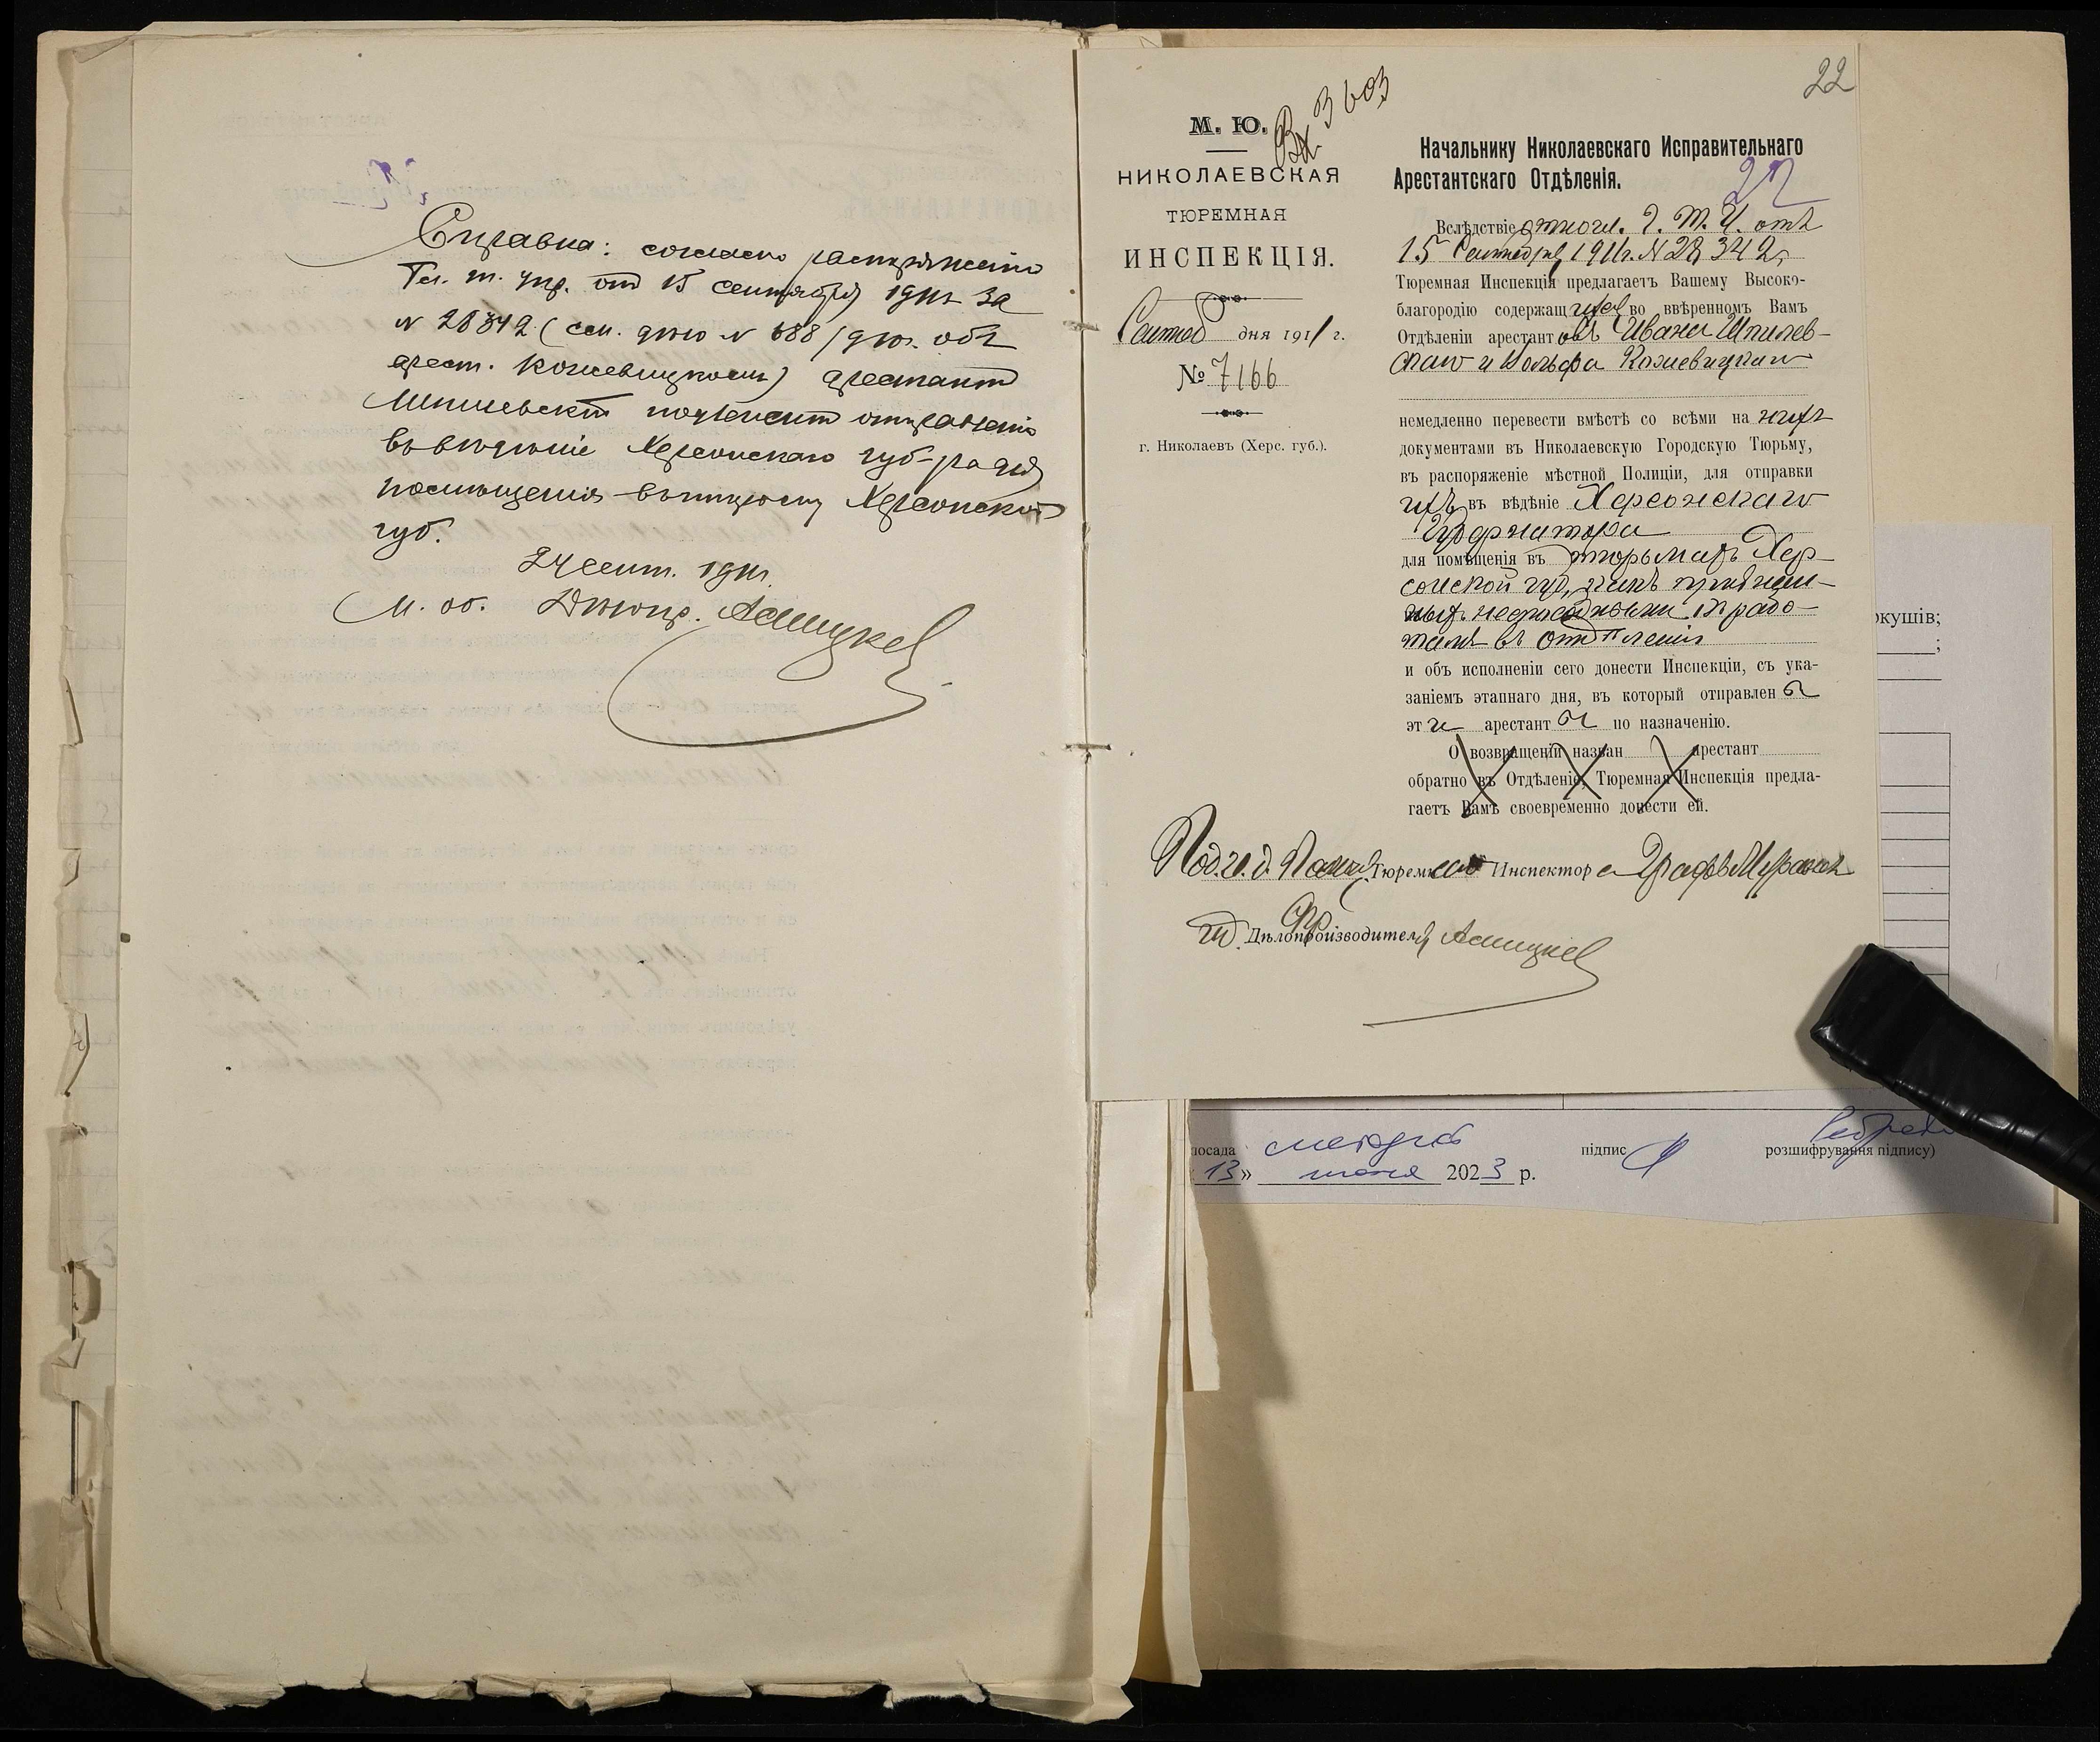 Справка: согласно распоряженію
Гл. т. упр. от 15 сентября 1911 г за
№ 28342 (см. дѣло № 688/910. объ
арест. Кожевицкомъ) арестант
Шпилевскій подлежит отправленію
въ вѣдѣніе Херсонскаго губ-ра для
помѣщенія въ тюрьму Херсонской
губ.
24 сент. 1911.
И. об. Дѣлопр.
22
М. Ю.
Вх 3603
НИКОЛАЕВСКАЯ
ТЮРЕМНАЯ
ИНСПЕКЦІЯ.
Сентяб дня 1911 г.
№ 7166
г. Николаевъ (Херс. губ.).
Начальнику Николаевскаго Исправительнаго
Арестантскаго Отдѣленія.
22
Вслѣдствіе отнош. Г. Т. У. отъ
15 Сентября 1911 г. № 28342,
Тюремная Инспекція предлагаетъ Вашему Высоко-
благородію содержащихся во ввѣренномъ Вамъ
Отдѣленіи арестантовъ Ивана Шпилев-
скаго и Вольфа Кожевицкаго
немедленно перевести вмѣстѣ со всѣми на нихъ
документами въ Николаевскую Городскую Тюрьму,
въ распоряженіе мѣстной Полиціи, для отправки
ихъ въ вѣдѣніе Херсонскаго
Губернатора
для помѣщенія въ тюрьмахъ Хер-
сонской губ., какъ признан-
ныхъ неспособными къ рабо-
тамъ въ отдѣленіи
и объ исполненіи сего донести Инспекціи, съ ука-
заніемъ этапнаго дня, въ который отправлены
эти арестанты по назначенію.
О возвращеніи назван арестант
обратно въ Отдѣленіе, Тюремная Инспекція предла-
гаетъ Вамъ своевременно донести ей.
Под. и. д. Тюремнаго Инспектора Графъ
Дѣлопроизводителя
окушів;
посада підпис розшифрування підпису)
13» 2023 р.